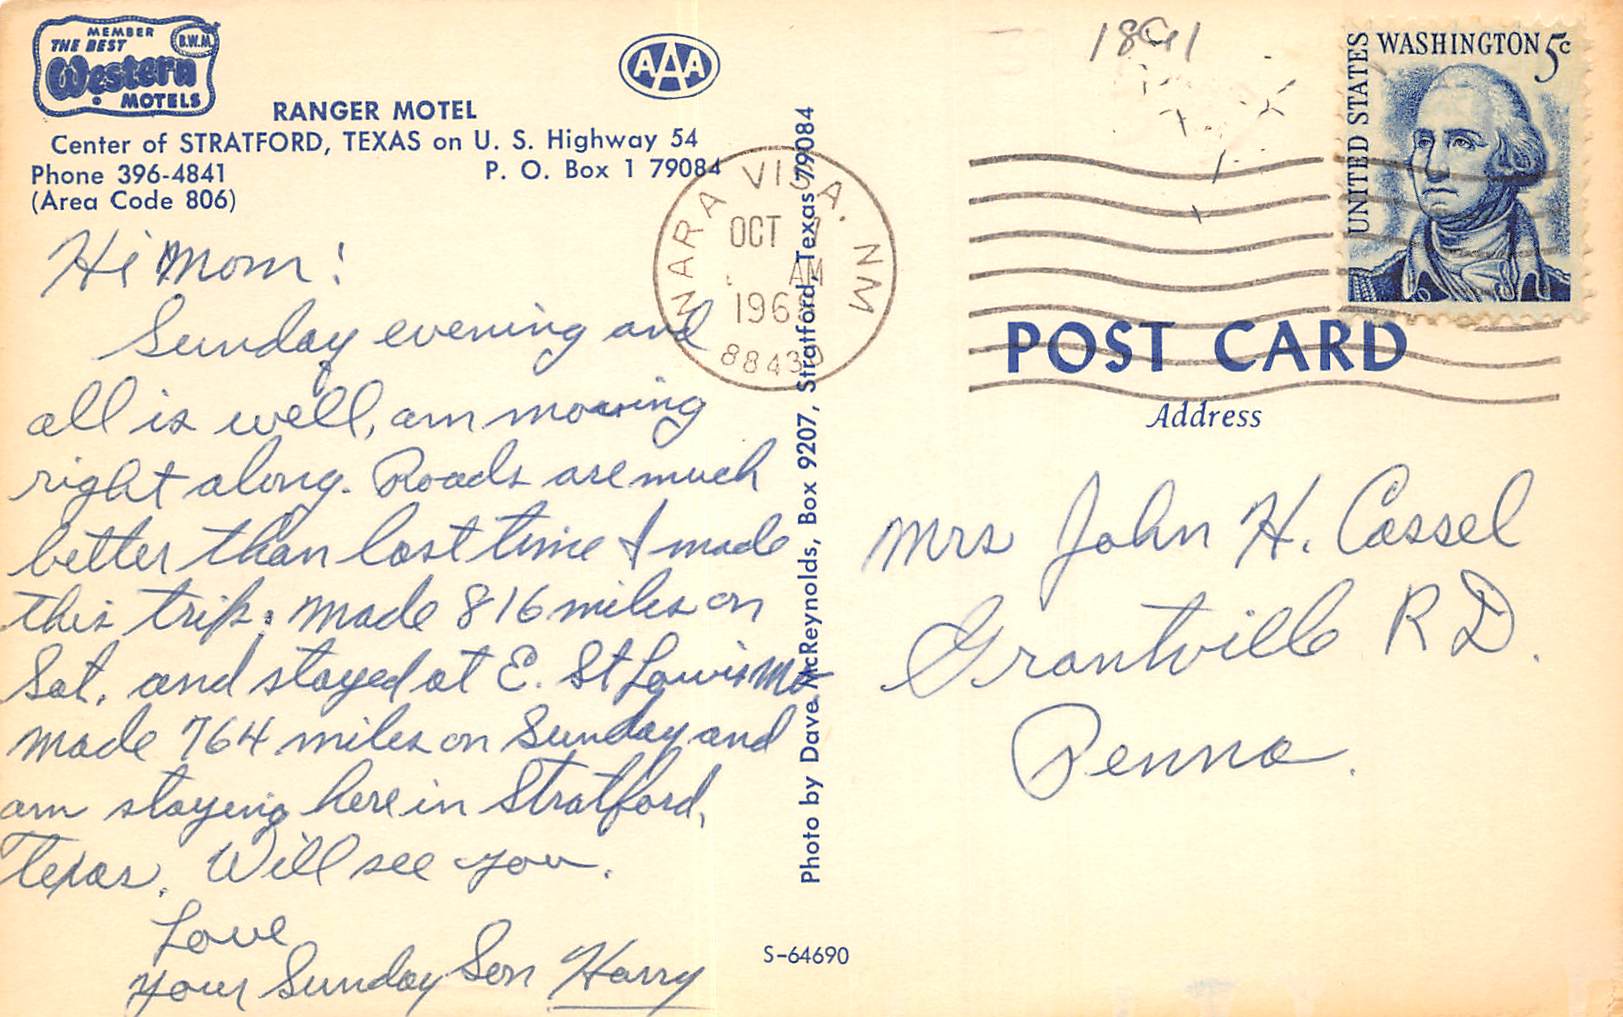 MEMBER
THE BEST
B.W.M.
Western
MOTELS
AAA
RANGER MOTEL
Center of STRATFORD, TEXAS on U. S. Highway 54
Phone 396-4841 P. O. Box 1 79084
(Area Code 806)
Hi Mom!
Sunday evening and
all is well, am moving
right along. Roads are much
better than last time I made
this trip. Made 816 miles on
Sat. and stayed at E. St Louis Mo
made 764 miles on Sunday and
am staying here in Stratford,
Texas. Will see you.
Love
your Sunday Son Harry
Photo by Dave McReynolds, Box 9207, Stratford, Texas 79084
S-64690
NARA VISA. NM
OCT 7
AM
196
88430
UNITED STATES
WASHINGTON 5c
POST CARD
Address
Mrs John H. Cassel
Grantville RD.
Penna.